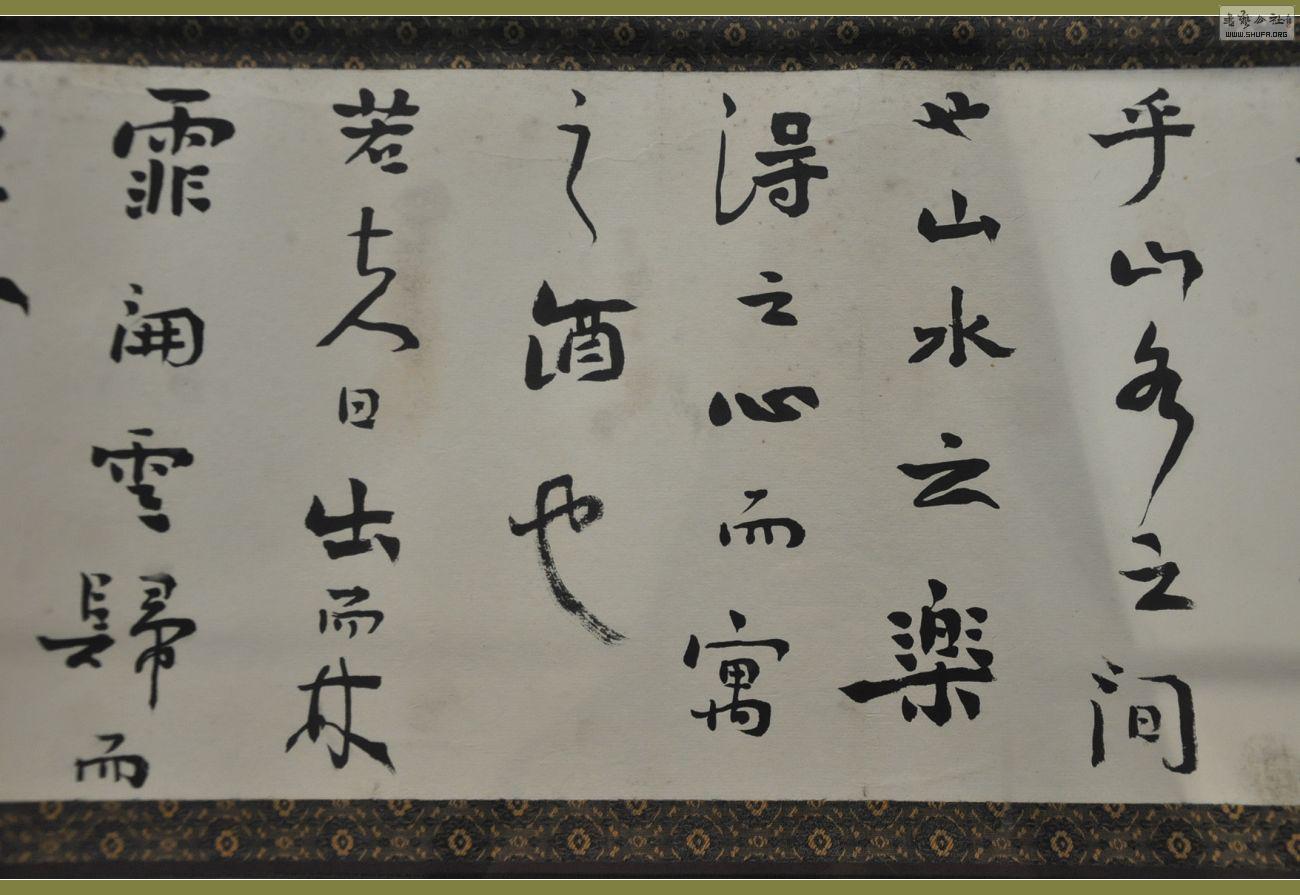 乎山水之間
也山水之樂
得之心而寓
之酒也
若夫日出而林
霏開雲歸而
書藝公社
WWW.SHUFA.ORG